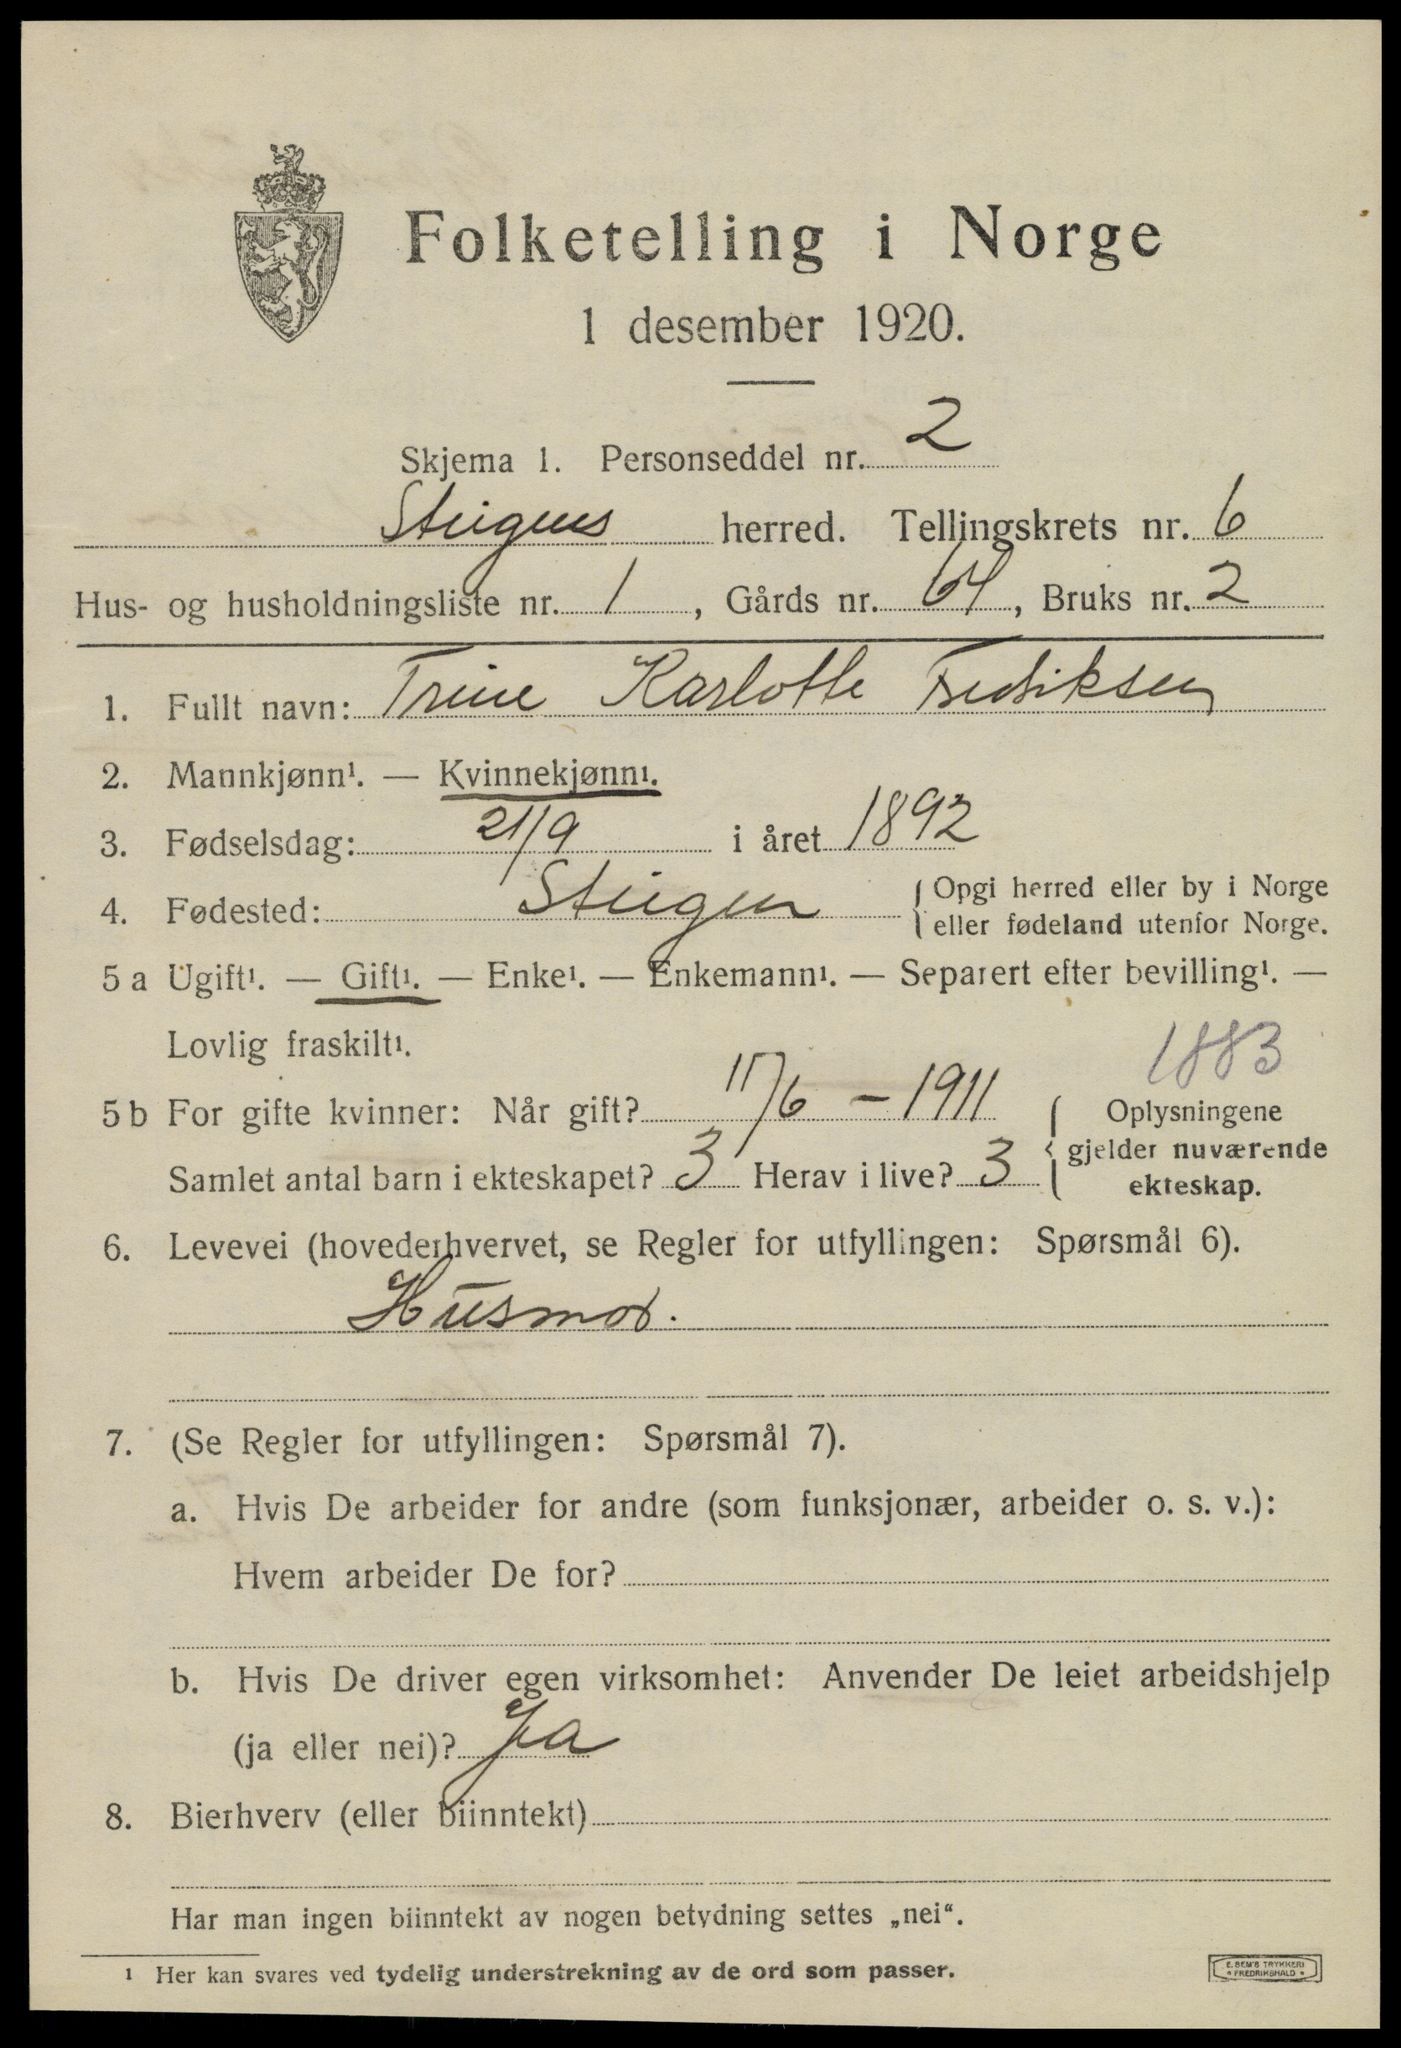 Folketelling i Norge
1 desember 1920.
Skjema 1. Personseddel nr. 2
Steigens herred. Tellingskrets nr. 6
Hus- og husholdningsliste nr. 1, Gårds nr. 64, Bruks nr. 2
1. Fullt navn: Trine Karlotte Fredriksen
2. Mannkjønn¹. — Kvinnekjønn¹.
3. Fødselsdag: 21/9 i året 1892
4. Fødested: Steigen { Opgi herred eller by i Norge
eller fødeland utenfor Norge.
5 a Ugift¹. — Gift¹. — Enke¹. — Enkemann¹. — Separert efter bevilling¹. —
Lovlig fraskilt¹.
1883
5 b For gifte kvinner: Når gift? 11/6 - 1911 { Oplysningene
gjelder nuværende
Samlet antal barn i ekteskapet? 3 Herav i live? 3 ekteskap.
6. Levevei (hovederhvervet, se Regler for utfyllingen: Spørsmål 6).
Husmor.
7. (Se Regler for utfyllingen: Spørsmål 7).
a. Hvis De arbeider for andre (som funksjonær, arbeider o. s. v.):
Hvem arbeider De for?
b. Hvis De driver egen virksomhet: Anvender De leiet arbeidshjelp
(ja eller nei)? Ja
8. Bierhverv (eller biinntekt)
Har man ingen biinntekt av nogen betydning settes „nei“.
¹ Her kan svares ved tydelig understrekning av de ord som passer.
E. SEM'S TRYKKERI
* FREDRIKSHALD *